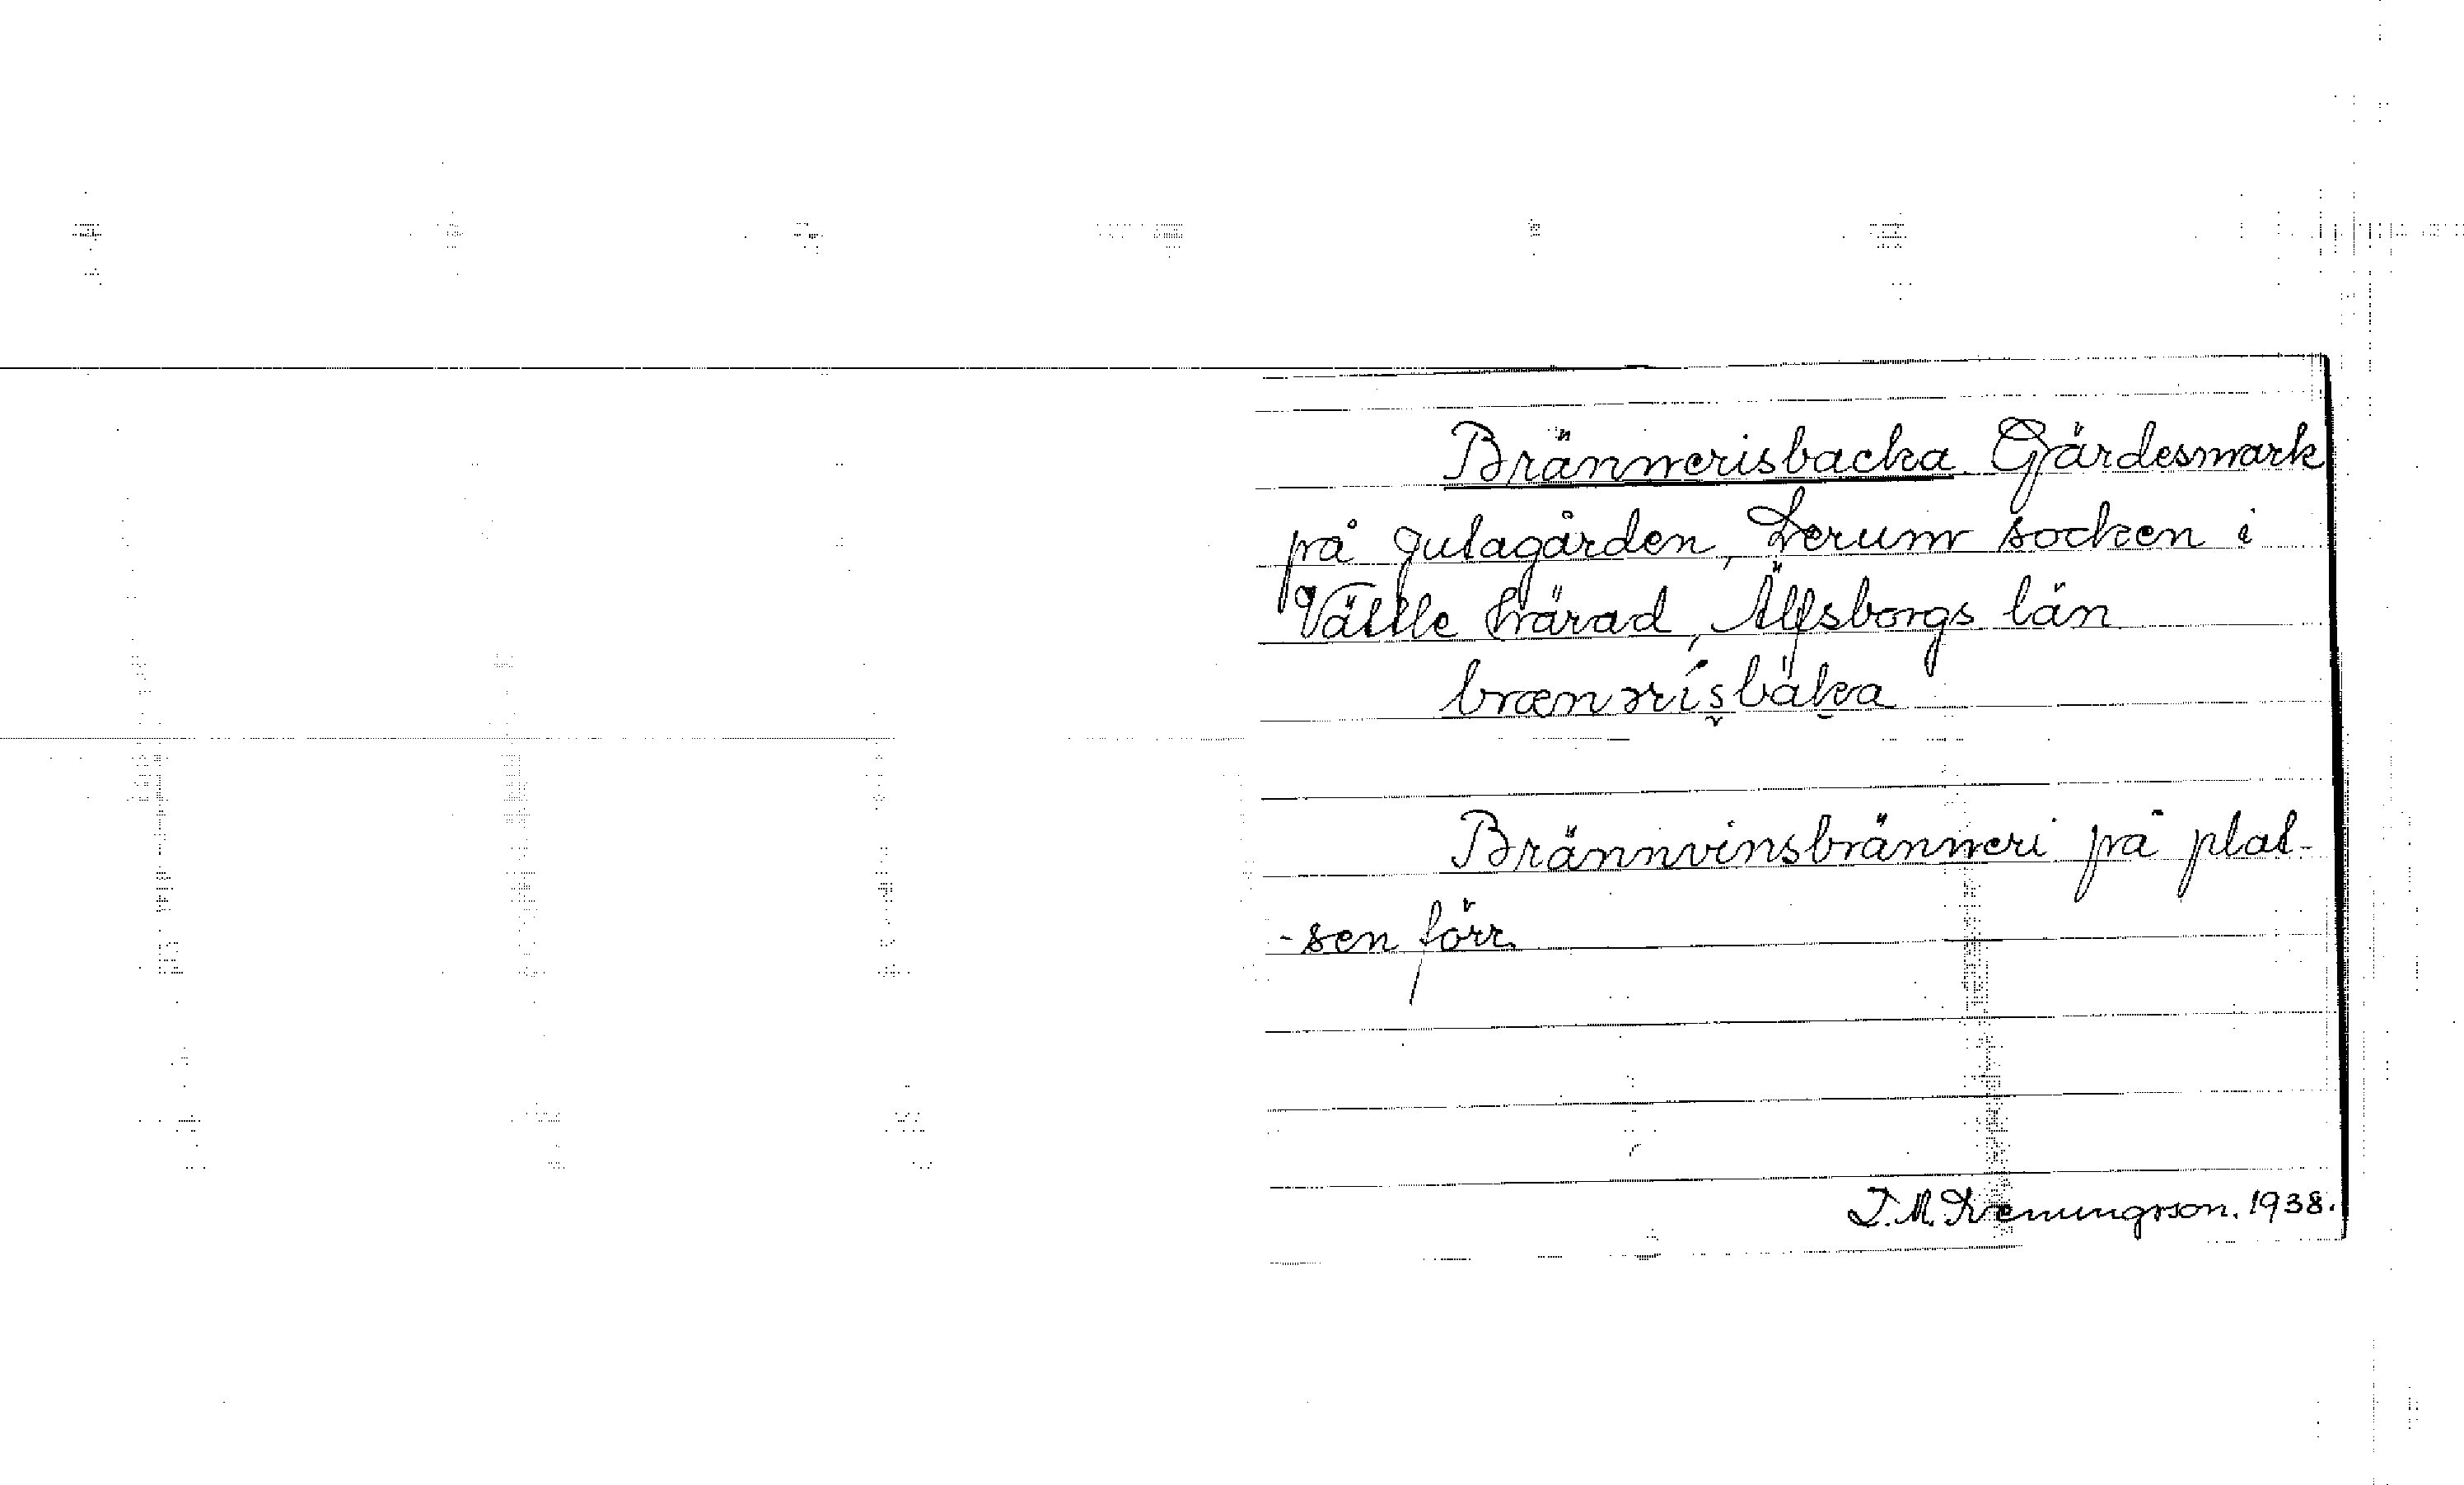 Brännerisbacka. Gärdesmark
på Julagården, Lerum socken i
Vättle härad, Älfsborgs län
Brännvinsbränneri på plat-
-sen förr.
1938.